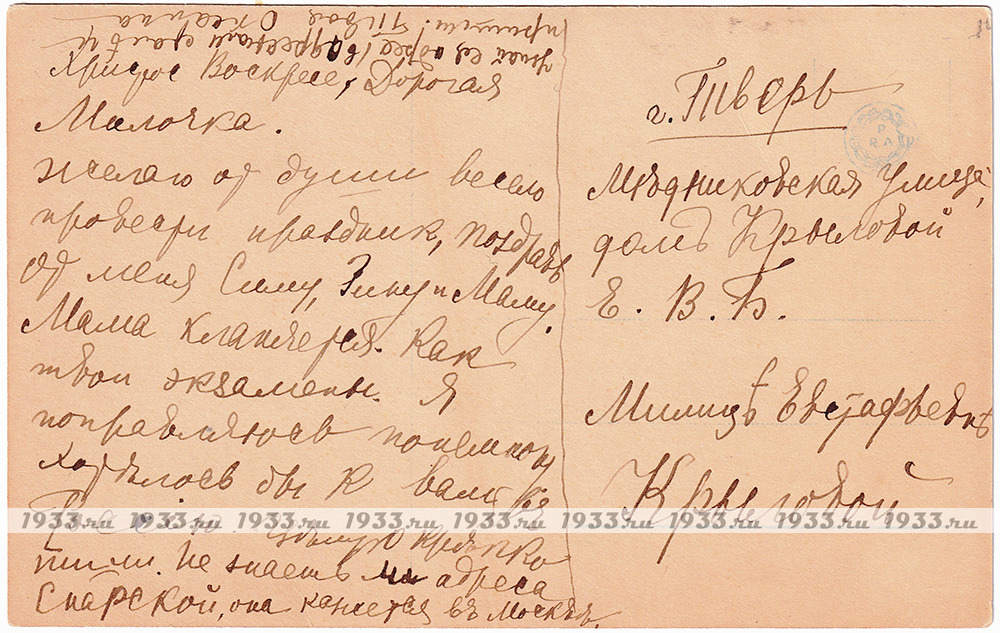 Христос Воскресе, Дорогая
Милочка.
желаю от души весело
провести праздник, поздравь
от меня Симу, Зину и Маму.
Мама кланяется. Как
твои экзамены. Я
поправляюсь понемногу
хотѣлось бы к вам въ
цѣлую крѣпко
пиши. Не знаешь ли адреса
Снарской, она кажется въ Москвѣ.
г. Тверь
Мѣдниковская улица,
домъ Крыловой
Е. В. Б.
Милицѣ Евстафьевнѣ
Крыловой
1933.ru 1933.ru 1933.ru 1933.ru 1933.ru 1933.ru 1933.ru 1933.ru